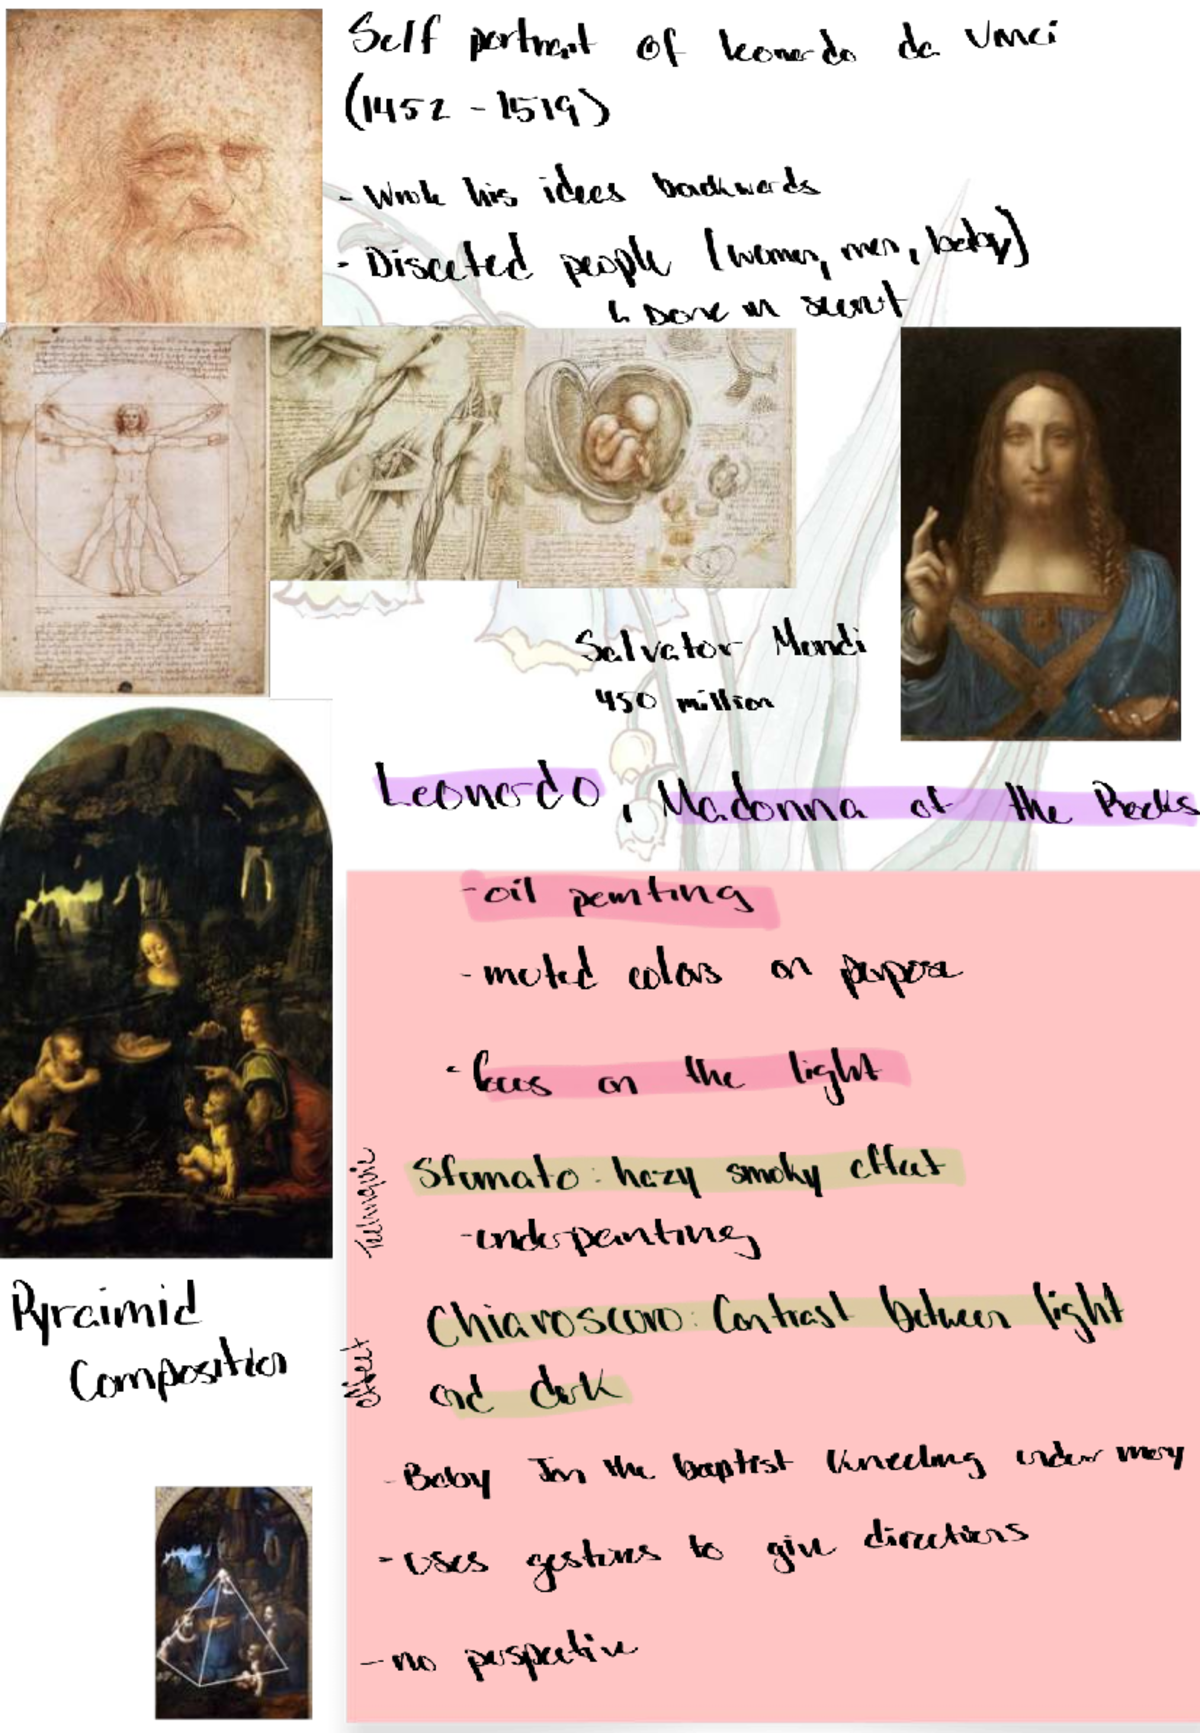 Self portrait of leonardo da Vinci
(1452 - 1519)
- Wrote his ideas backwards
- Disceted people (women, men, baby)
↳ Done in secret
Salvator Mundi
450 million
Leonardo, Madonna of the Rocks
- oil painting
- muted colors on purpose
- focus on the light
Technique
Sfumato: hazy smoky effect
- underpainting
effect
Chiaroscuro: Contrast between light
and dark
Pyraimid
Composition
- Baby Jon the baptist kneeling under mary
- uses gestures to give directions
- no perspective